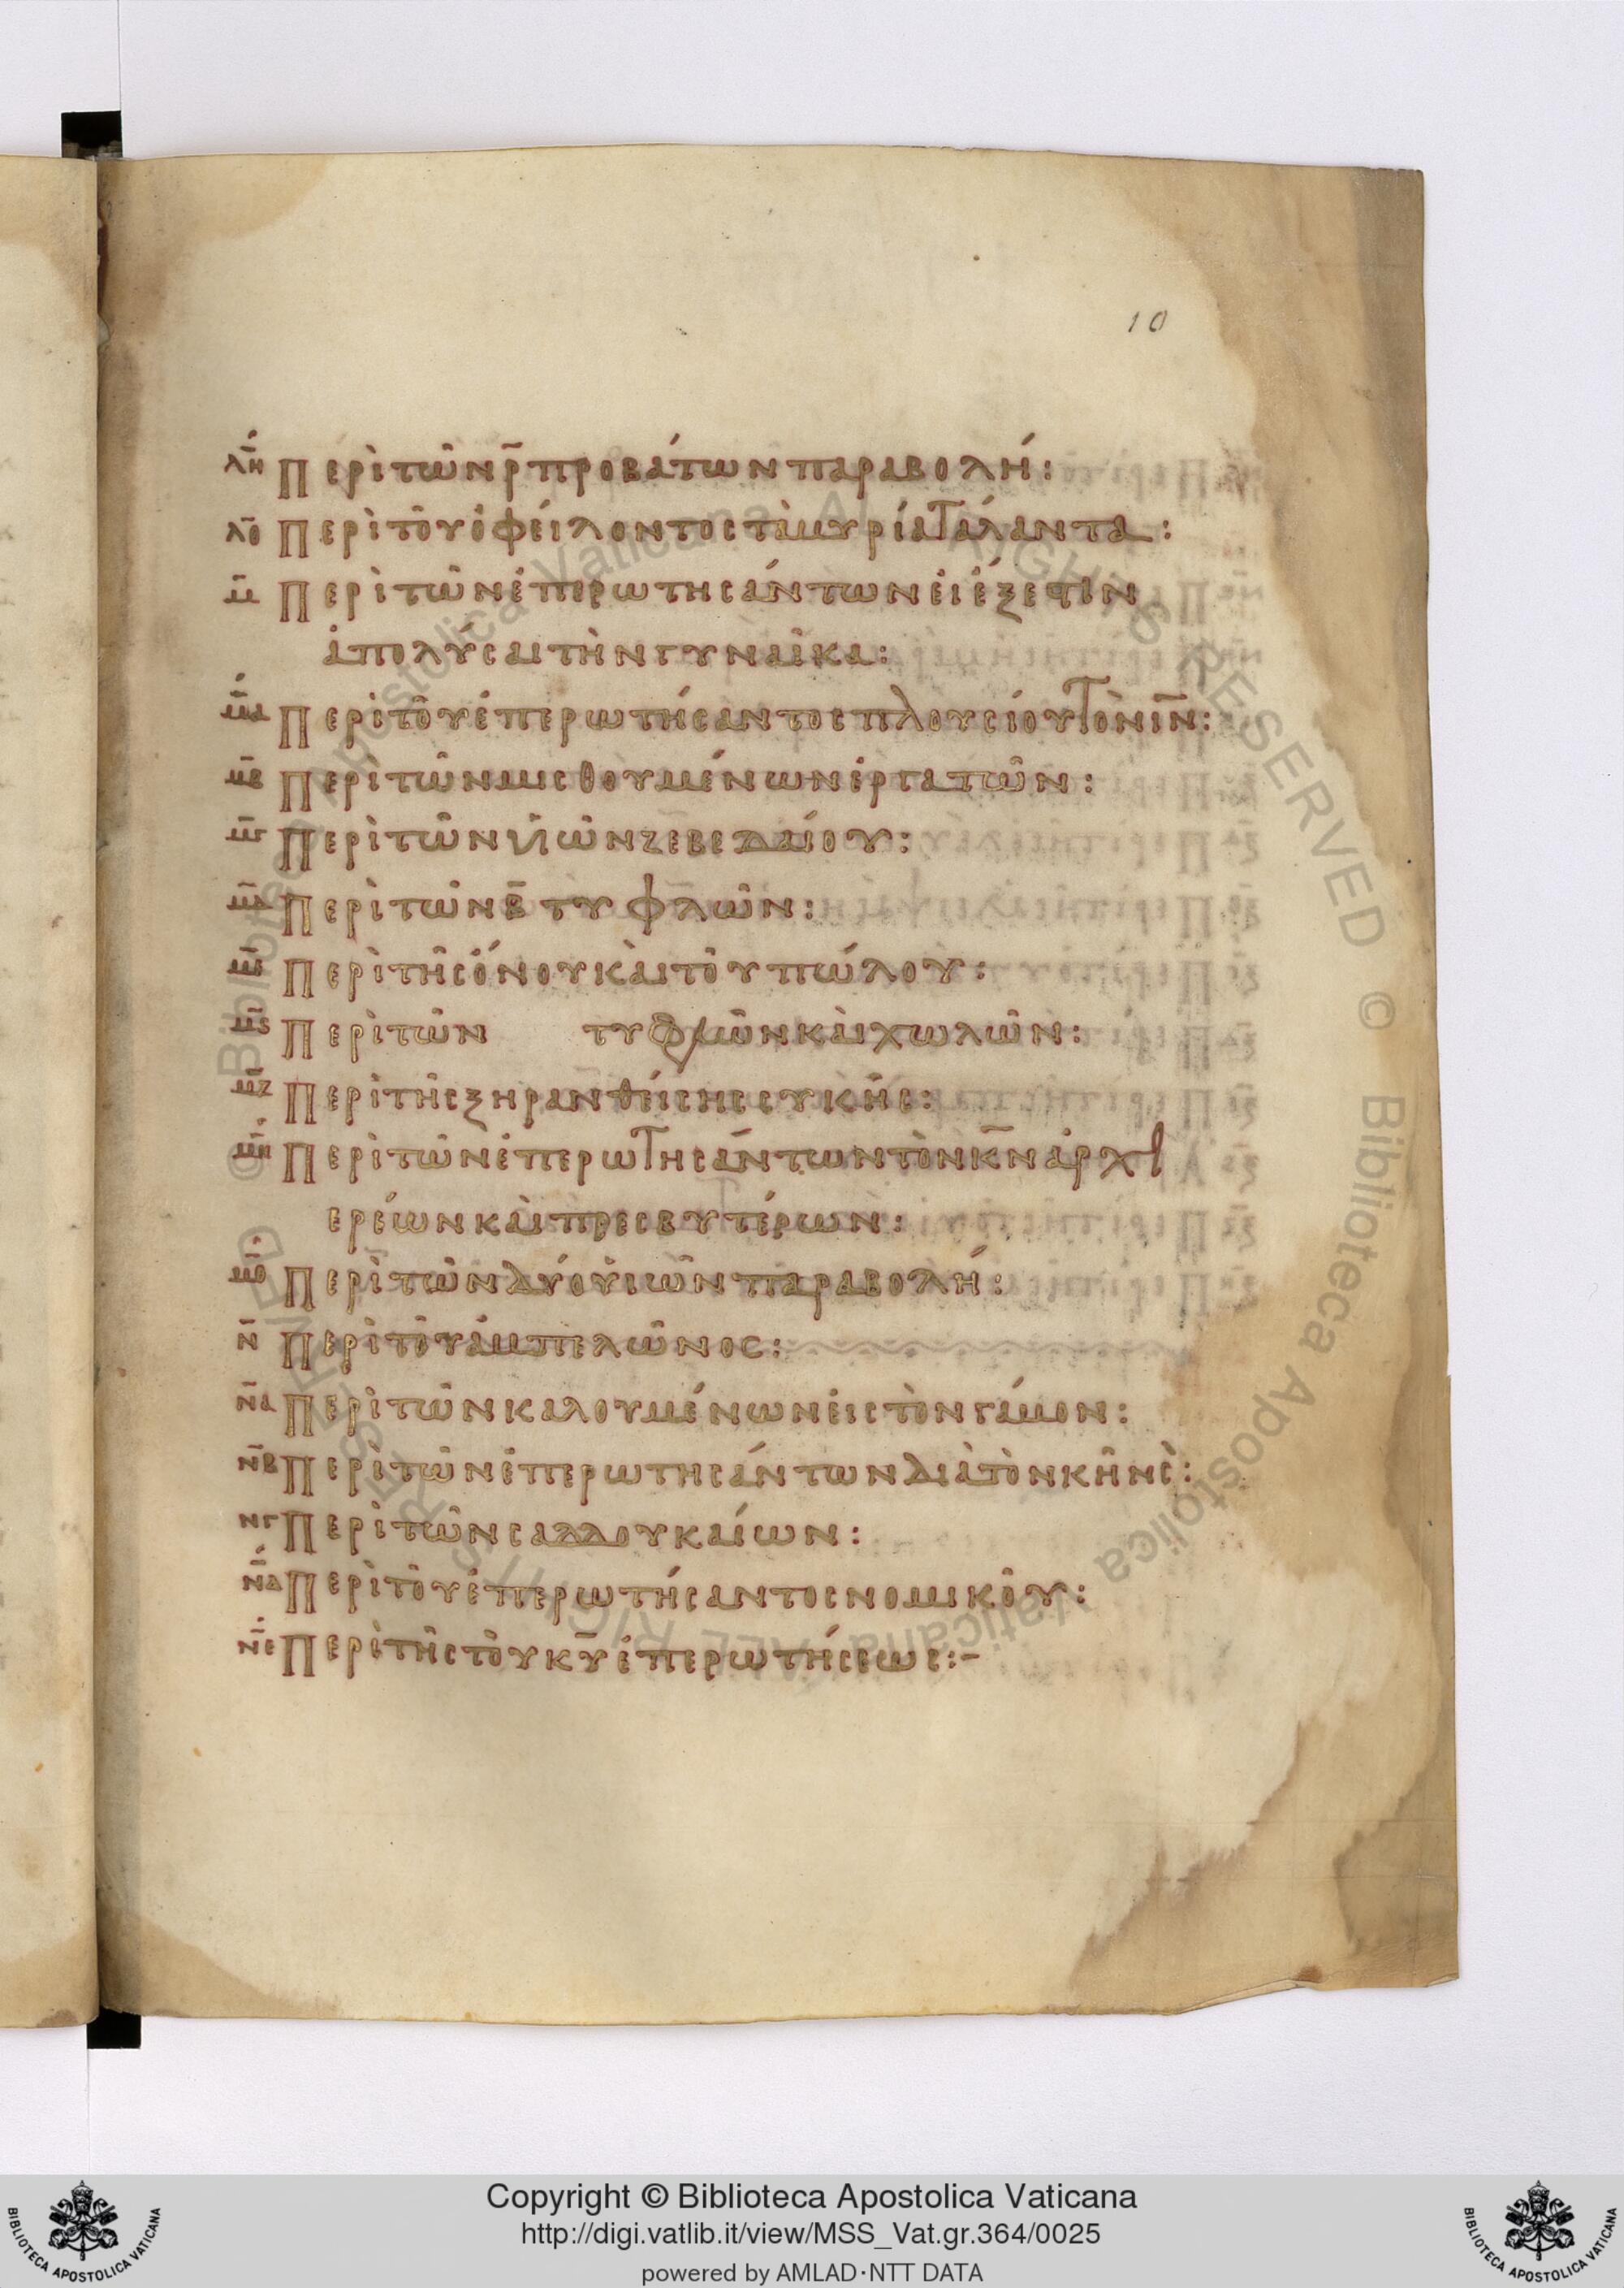 10
λη Περὶ τῶν ρ̄ προβάτων παραβολή:
λθ Περὶ τοῦ ὀφείλοντος τὰ μυρία τάλαντα:
μ̄ Περὶ τῶν ἐπερωτησάντων εἰ ἔξεστιν
ἀπολύσαι τὴν γυναῖκα:
μα Περὶ τοῦ ἐπερωτήσαντος πλουσίου τὸν ῑν̄:
μβ Περὶ τῶν μισθουμένων ἐργατῶν:
μγ Περὶ τῶν ὑϊῶν ζεβεδαίου:
μδ Περὶ τῶν β̄ τυφλῶν:
με Περὶ τῆς ὄνου καὶ τοῦ πώλου:
μς Περὶ τῶν τυφλῶν καὶ χωλῶν:
μζ Περὶ τῆς ξηρανθείσης συκῆς:
μη Περὶ τῶν ἐπερωτησάντων τὸν κ̄ν̄ ἀρχι
ερέων καὶ πρεσβυτέρων:
μθ Περὶ τῶν δύο υἱῶν παραβολή:
ν̄ Περὶ τοῦ ἀμπελῶνος:
να Περὶ τῶν καλουμένων εἰς τὸν γάμον:
νβ Περὶ τῶν ἐπερωτησάντων διὰ τὸν κῆνσὸ:
νγ Περὶ τῶν σαδδουκαίων:
νδ Περὶ τοῦ ἐπερωτήσαντος νομικοῦ:
νε Περὶ τῆς τοῦ κ̄ῡ ἐπερωτήσεως:-
Copyright © Biblioteca Apostolica Vaticana
http://digi.vatlib.it/view/MSS_Vat.gr.364/0025
powered by AMLAD·NTT DATA
BIBLIOTECA APOSTOLICA VATICANA
BIBLIOTECA APOSTOLICA VATICANA